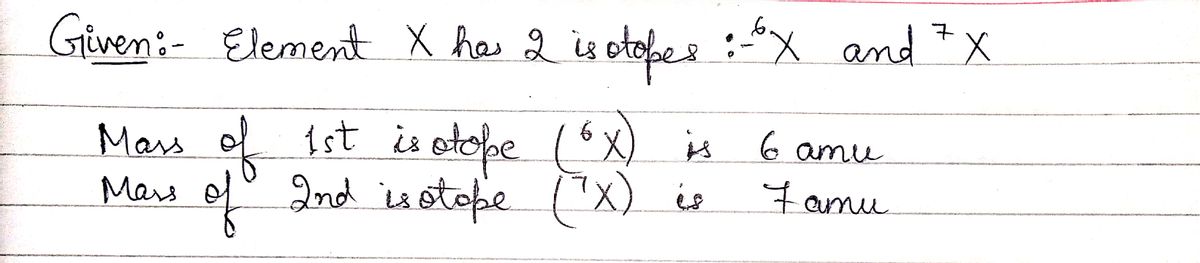 Given:- Element X has 2 isotopes :- ⁶X and ⁷X
Mass of 1st isotope (⁶X) is 6 amu
Mass of 2nd isotope (⁷X) is 7 amu